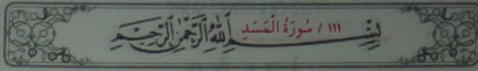 ١١١ / سُورَةُ الْمَسَدِ
بِسْمِ اللَّهِ الرَّحْمَٰنِ الرَّحِيمِ